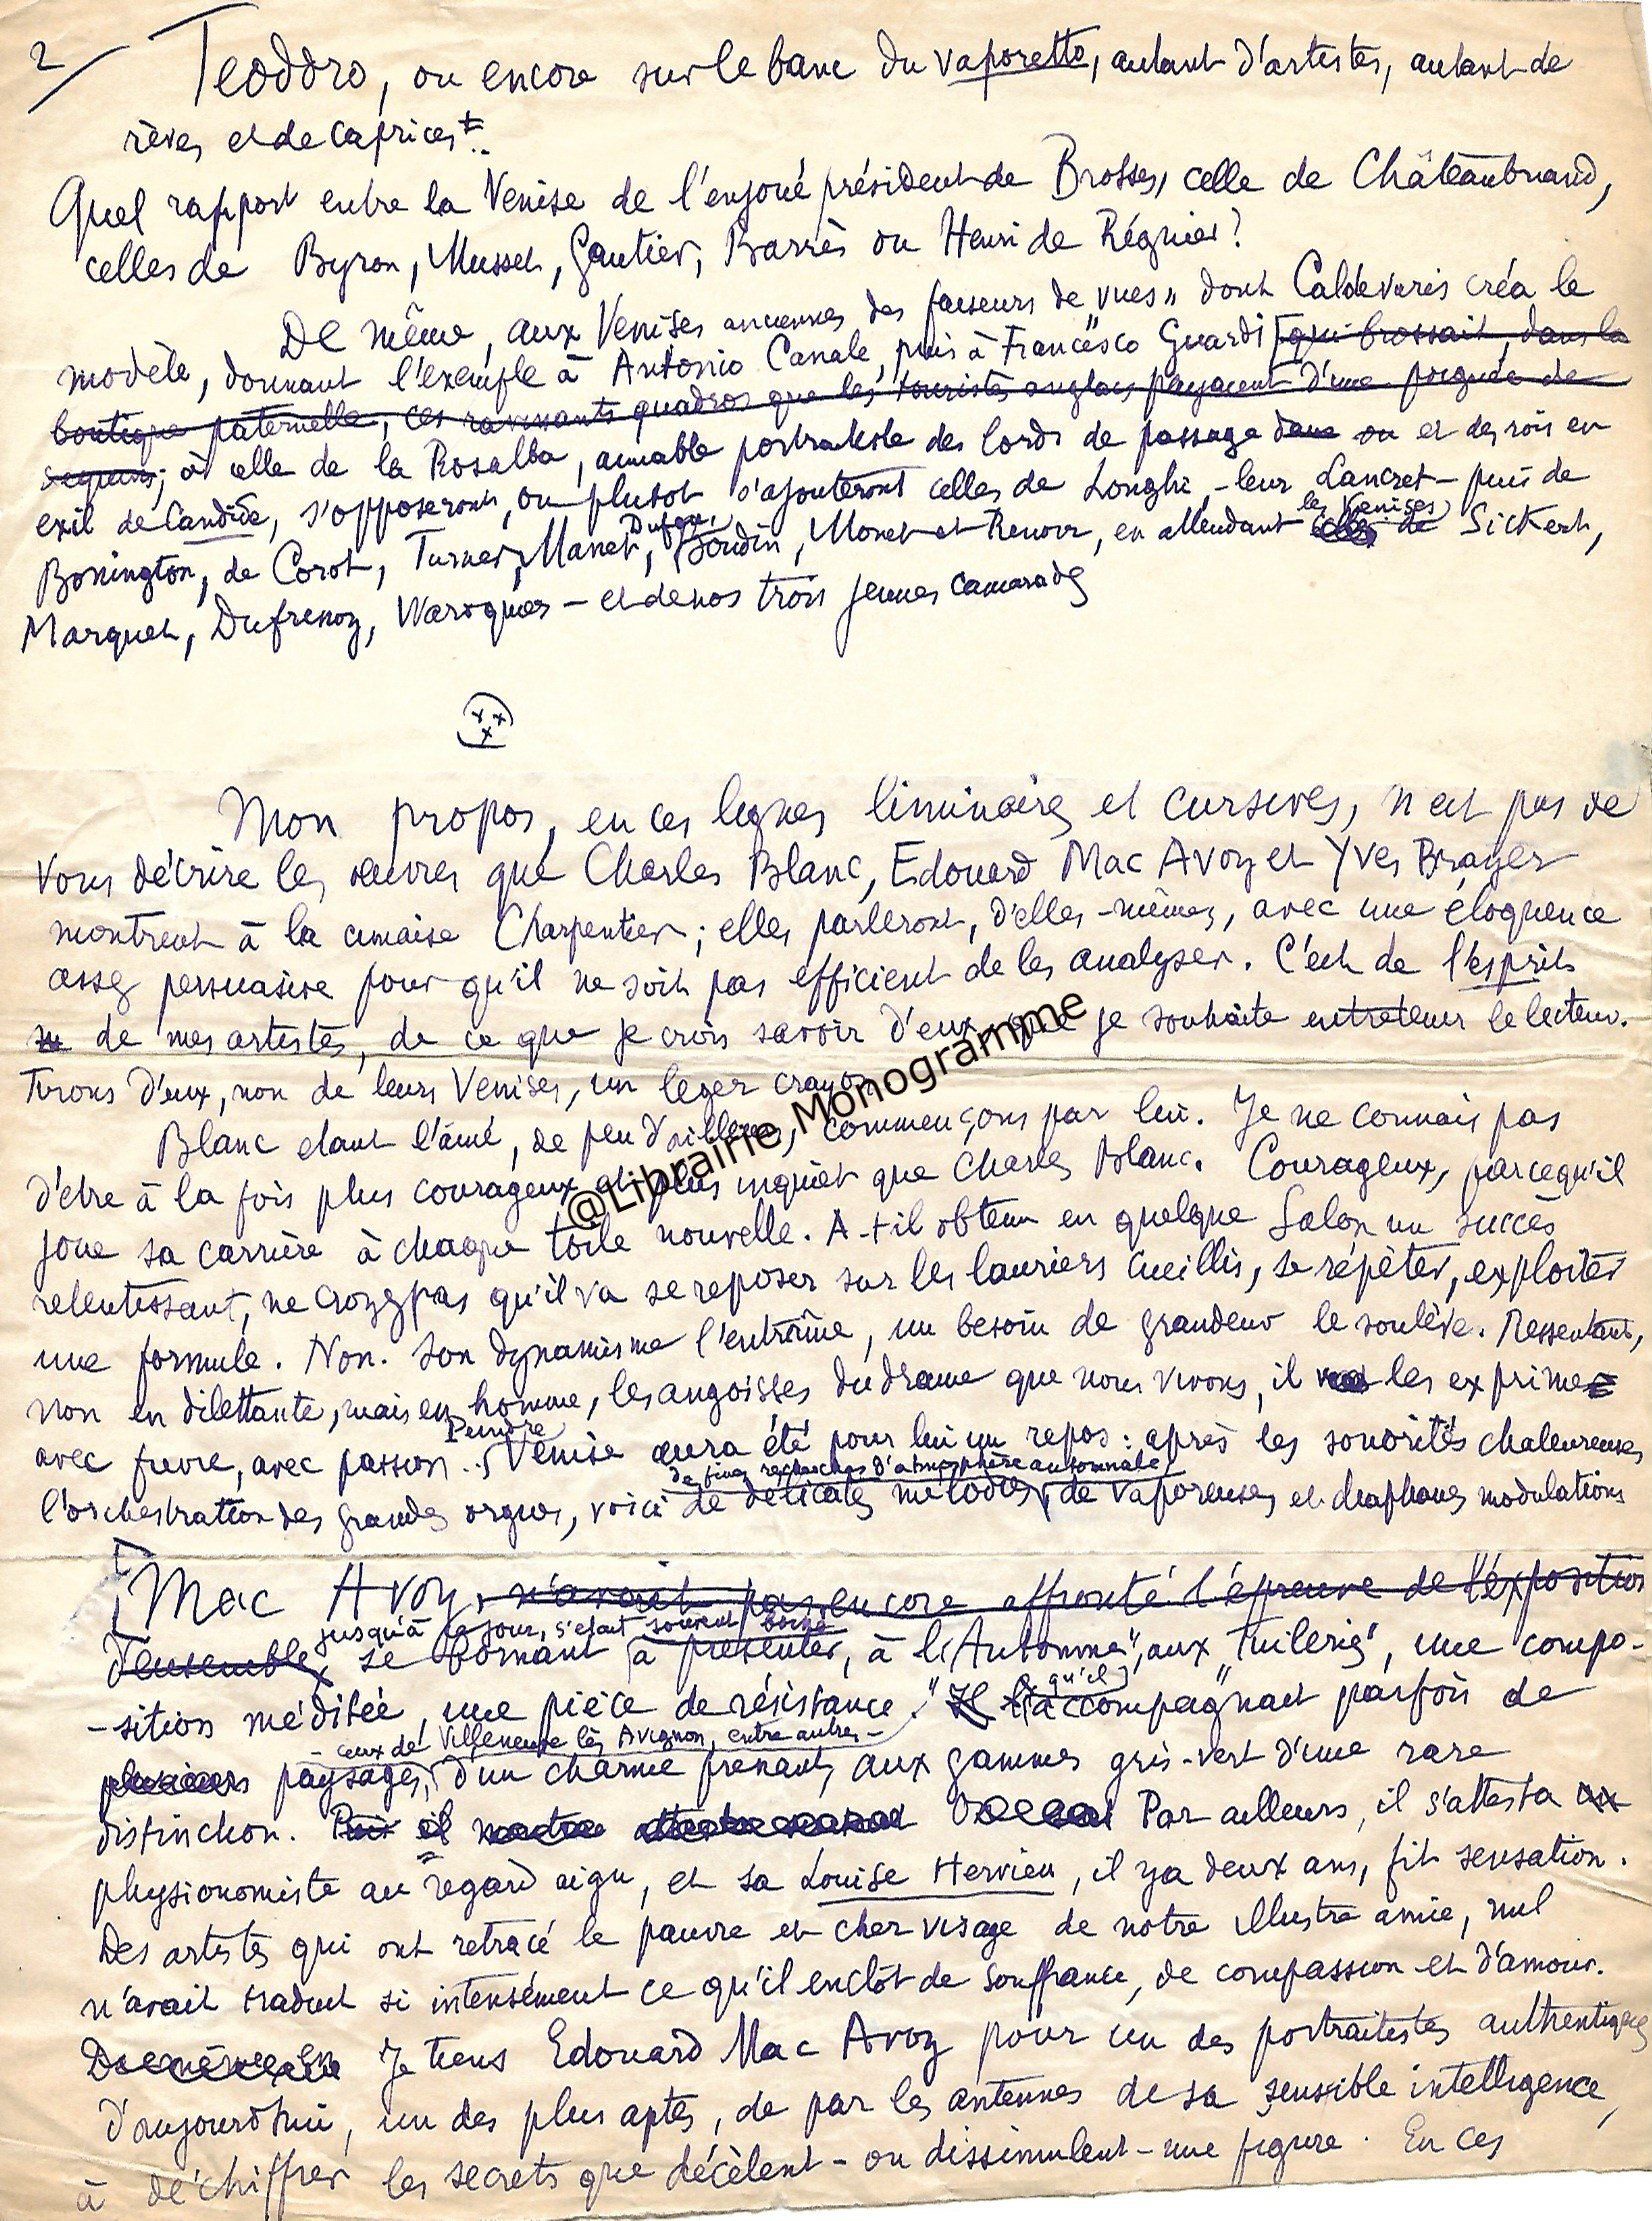 2/ Teodoro, ou encore sur le banc du vaporetto, autant d'artistes, autant de
rêves et de caprices..
Quel rapport entre la Venise de l'enjoué président de Brosses, celle de Châteaubriand,
celles de Byron, Musset, Gautier, Barrès ou Henri de Régnier?
De même, aux Venises anciennes des faiseurs de vues" dont Caldevaris créa le
modèle, donnant l'exemple à Antonio Canale, puis à Francesco Guardi [qui brossait, dans la
boutique paternelle, ces ravissants quadros que les touristes anglais payaient d'une poignée de
sequins; à celle de la Rosalba, aimable portraitiste des lords de passage dans ou et des rois en
exil de Candide, s'opposeront, ou plutôt s'ajouteront celles de Longhi, - leur Lancret - puis de
Bonington, de Corot, Turner, Manet, Boudin, Monet et Renoir, en attendant les Venises de Sickert,
Marquet, Dufrenoy, Waroquier - et de nos trois jeunes camarades
x x
x
Mon propos, en ces lignes liminaires et cursives, n'est pas de
vous décrire les œuvres que Charles Blanc, Edouard Mac Avoy et Yves Brayer
montrent à la cimaise Charpentier; elles parleront, d'elles-mêmes, avec une éloquence
assez persuasive pour qu'il ne soit pas efficient de les analyser. C'est de l'esprit
de mes artistes, de ce que je crois savoir d'eux, que je souhaite entretenir le lecteur.
Tirons d'eux, non de leurs Venises, un leger crayon.
Blanc étant l'aîné, de peu d'ailleurs, commençons par lui. Je ne connais pas
d'être à la fois plus courageux et plus inquiet que Charles Blanc. Courageux, parcequ'il
joue sa carrière à chaque toile nouvelle. A-t-il obtenu en quelque Salon un succès
retentissant, ne croyez pas qu'il va se reposer sur les lauriers cueillis, se répéter, exploiter
une formule. Non. Son dynamisme l'entraîne, un besoin de grandeur le soulève. Ressentant,
non en dilettante, mais en homme, les angoisses du drame que nous vivons, il les exprime
avec fièvre, avec passion.. Peindre Venise aura été pour lui un repos: après les sonorités chaleureuses
de fines recherches d'atmosphère automnale,
l'orchestration des grandes orgues, voici de délicates mélodies, de vaporeuses et diaphanes modulations
[Mac Avoy, n'avait pas encore affronté l'épreuve de l'exposition
jusqu'à ce jour, s'était souvent borné
d'ensemble, se bornant à présenter, à l'"Automne", aux "Tuileries", une compo-
-sition méditée, une "pièce de résistance" Il qu'il accompagnait parfois de
- ceux de Villeneuve lès Avignon, entre autres -
plusieurs paysages, d'un charme prenant, aux gammes gris-vert d'une rare
distinction. Puis il Par ailleurs, il s'attesta
physionomiste au regard aigu, et sa Louise Hervieu, il y a deux ans, fit sensation.
Des artistes qui ont retracé le pauvre et cher visage de notre illustre amie, nul
n'avait traduit si intensément ce qu'il enclôt de souffrance, de compassion et d'amour.
Je tiens Edouard Mac Avoy pour un des portraitistes authentiques
d'aujourd'hui, un des plus aptes, de par les antennes de sa sensible intelligence,
à déchiffrer les secrets que décèlent - ou dissimulent - une figure. En ces
@Librairie Monogramme